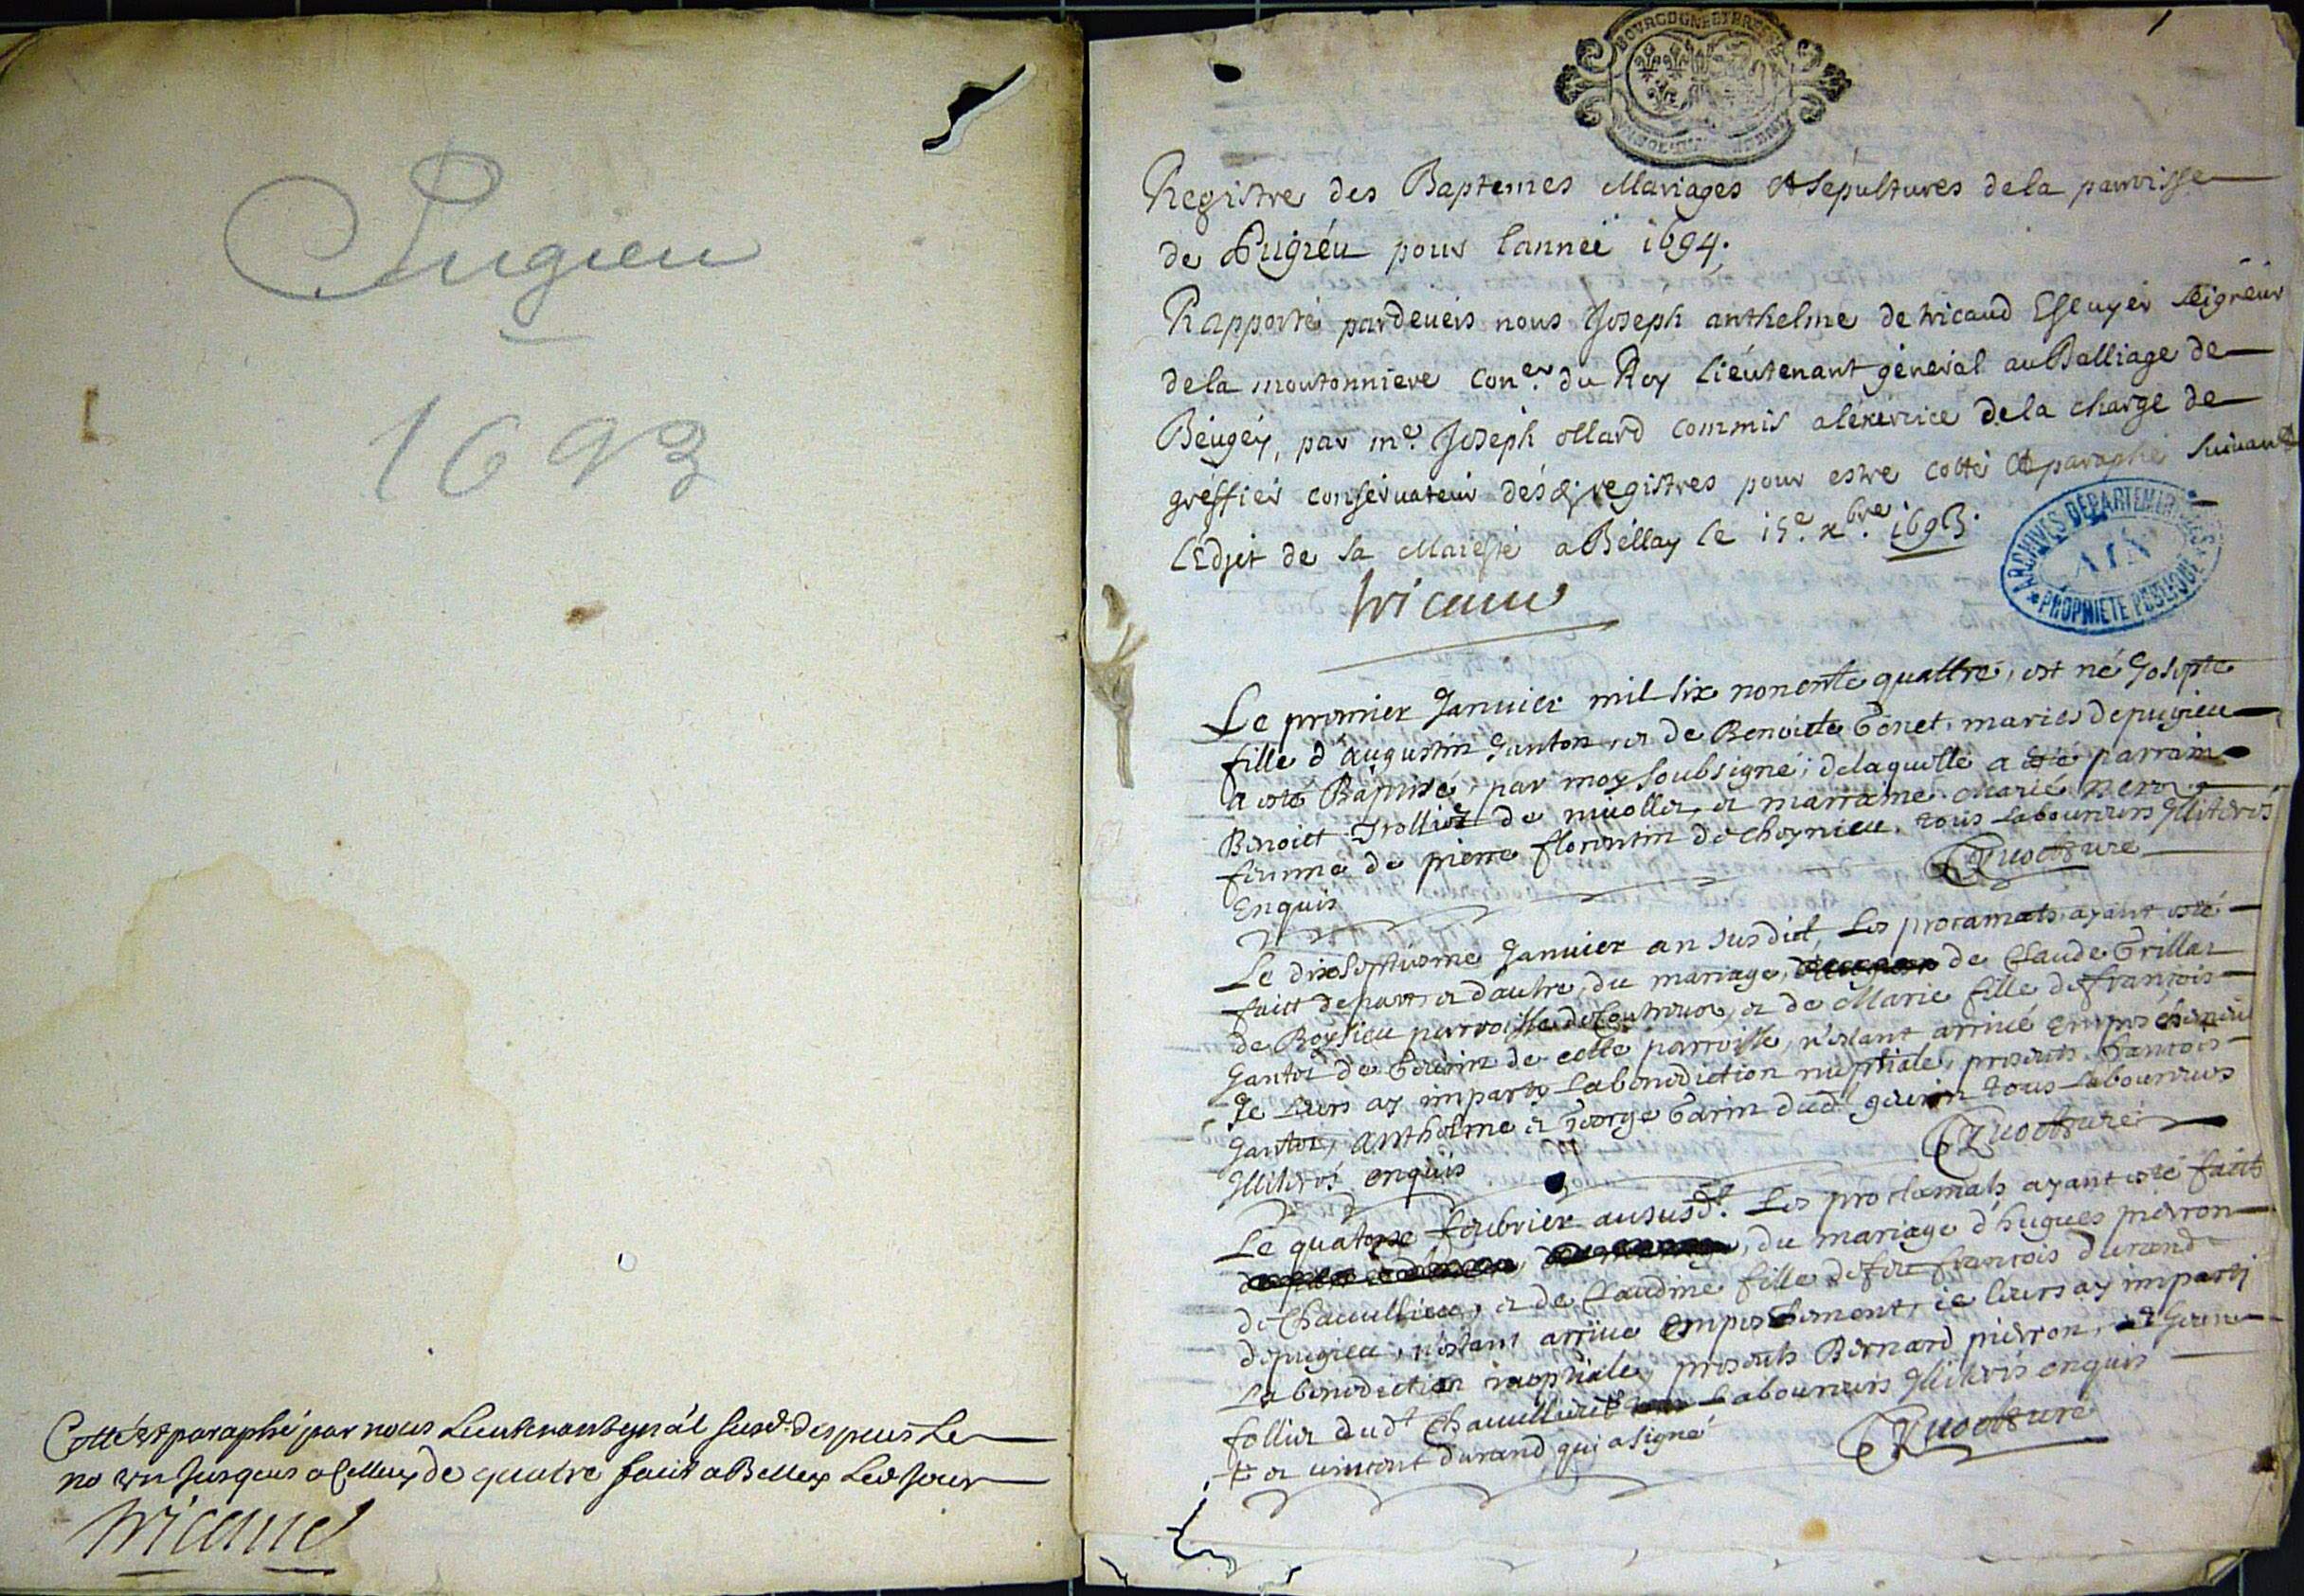 Pugieu
1693
Cotté et paraphé par nous Lieutenant general susd. depuis Le
no un jusques a celluy de quatre fait a Belley Led jour
Tricaud
1
BOURGOGNE ET BRESSE
Registre des Baptemes Mariages Et sepultures de la parroisse
de Pugieu pour lanneé 1694.
Rapporté pardeuers nous Joseph anthelme de tricaud Escuyer seigneur
de la moutonniere con.er du Roy lieutenant general au Balliage de
Beugey, par me. Joseph ollard commis a lexercice de la charge de
greffier conseruateur desd. registres pour estre cotté Et paraphé suiuant
LEdjet de sa Maiesté a Bellay le 15.e xbre. 1693.
Tricaud
ARCHIVES DEPARTEMENTALES
AIN
PROPRIETE PUBLIQUE
Le premier Januier mil six nonente quattre, est né Josepte
fille d'augustin Janton, et de Benoicte mariés depugieu
a esté Baptisé, par moy soubsigné; delaquelle a esté parrain
Benoict Trollier de et marraine Marie
femme de pierre florentin de cheynieu, tous Laboureurs Jlliterés
Enquis
curé
Le dixseptiesme Januier an susdict, Les proclamats ayant esté
faict de part et dautre, du mariage, de Claude
de Roysieu parroisse de et de Marie fille de francois
Jantet de de cette parroisse, n'estant arriué empeschement
Je Leurs ay imparty La benediction nuptiale, presents francois
Jantet, Anthelme et George Tarin dud. tous Laboureurs
Jlliterés enquis
curé
Le quatorse feubrier ausd.t Les proclamats ayant esté faicts
du mariage d'hugues pierron
de Chauillieu, et de Claudine fille de feu francois durand
depugieu, n'estant arriue empeschement, ie leurs ay imparti
La benediction nuptiale, presents Bernard pierron, et
follier dud.t Chauillieu Laboureurs Jlliterés enquis
et uincent durand, qui a signé
curé